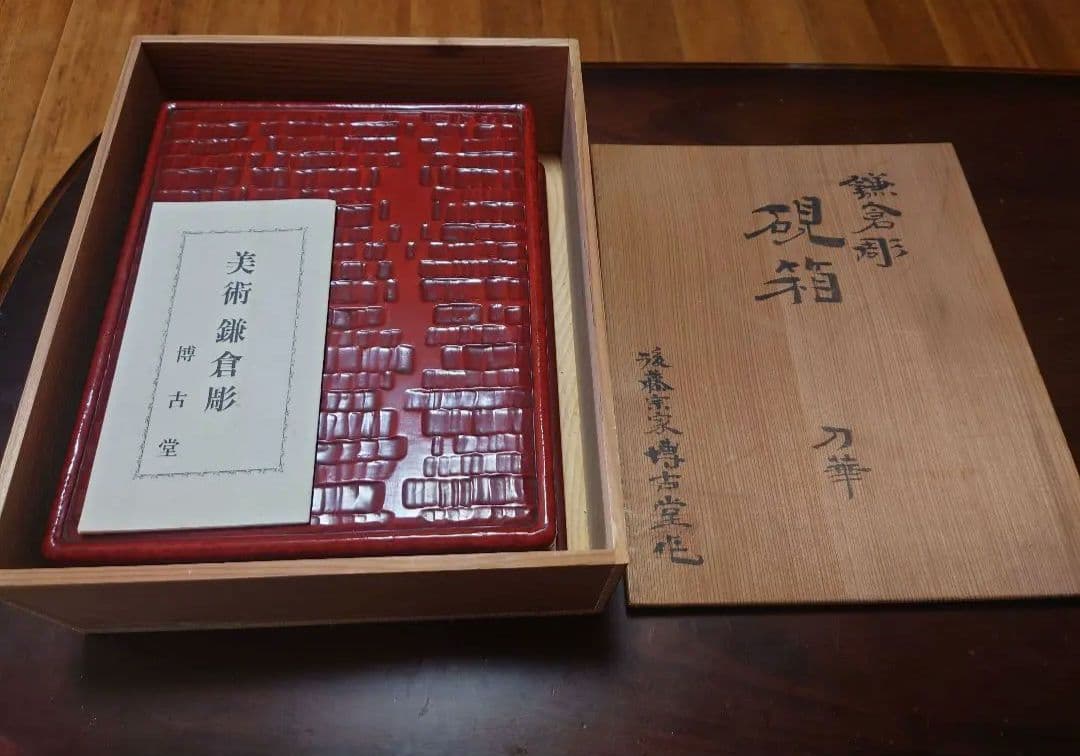 美術 鎌倉彫
博古堂
鎌倉彫
硯箱
刀華
後藤宗家博古堂作